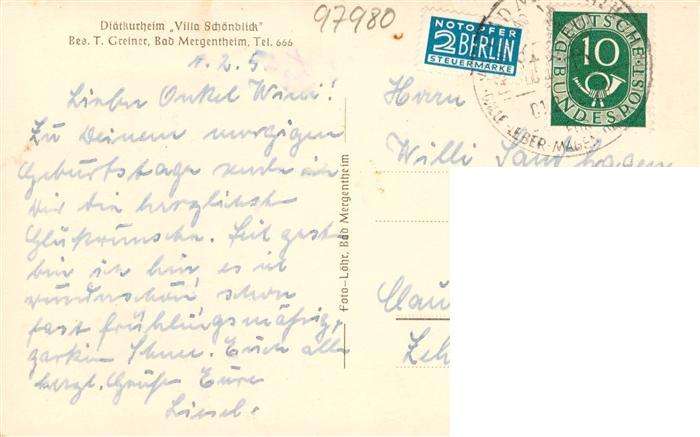 Diätkurheim „Villa Schönblick"
Bes. T. Greiner, Bad Mergentheim, Tel. 666
97980
NOTOPFER
2 BERLIN
STEUERMARKE
DEUTSCHE BUNDESPOST
10
Lieber Onkel Willi!
Zu Deinem morgigen
Geburtstage sende ich
Dir die herzlichst
Glükwünsche. Seit gest
bin ich hier, es ist
wunderschön, schon
fast frühlingsmäßig,
Sonne. Euch alle
herzl. Grüße Eure
Liesel.
Foto-Löhr, Bad Mergentheim
Herrn
Willi
Clau
Zeh